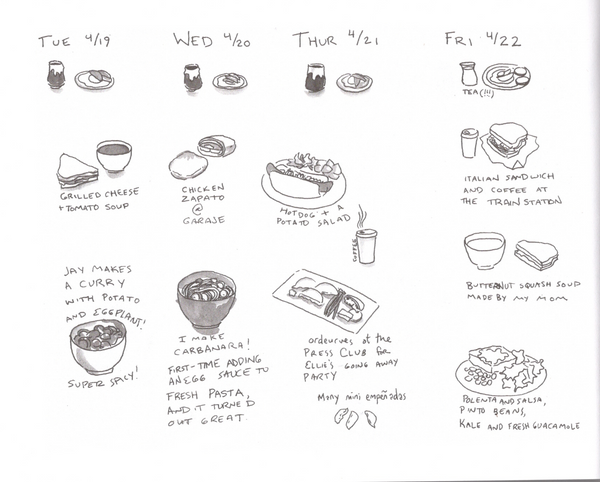 TUE 4/19
GRILLED CHEESE
+ TOMATO SOUP
JAY MAKES
A CURRY
WITH POTATO
AND EGGPLANT!
SUPER SPICY!
WED 4/20
CHICKEN
ZAPATO
@
GARAJE
I MAKE
CARBANARA!
FIRST-TIME ADDING
AN EGG SAUCE TO
FRESH PASTA,
AND IT TURNED
OUT GREAT.
THUR 4/21
HOTDOG + A
POTATO SALAD
COFFEE
ordeurves at the
PRESS CLUB FOR
ELLIE'S GOING AWAY
PARTY
Many mini empeñadas
FRI 4/22
TEA(!!!)
ITALIAN SANDWICH
AND COFFEE AT
THE TRAIN STATION
BUTTERNUT SQUASH SOUP
MADE BY MY MOM
POLENTA AND SALSA,
PINTO BEANS,
KALE AND FRESH GUACAMOLE